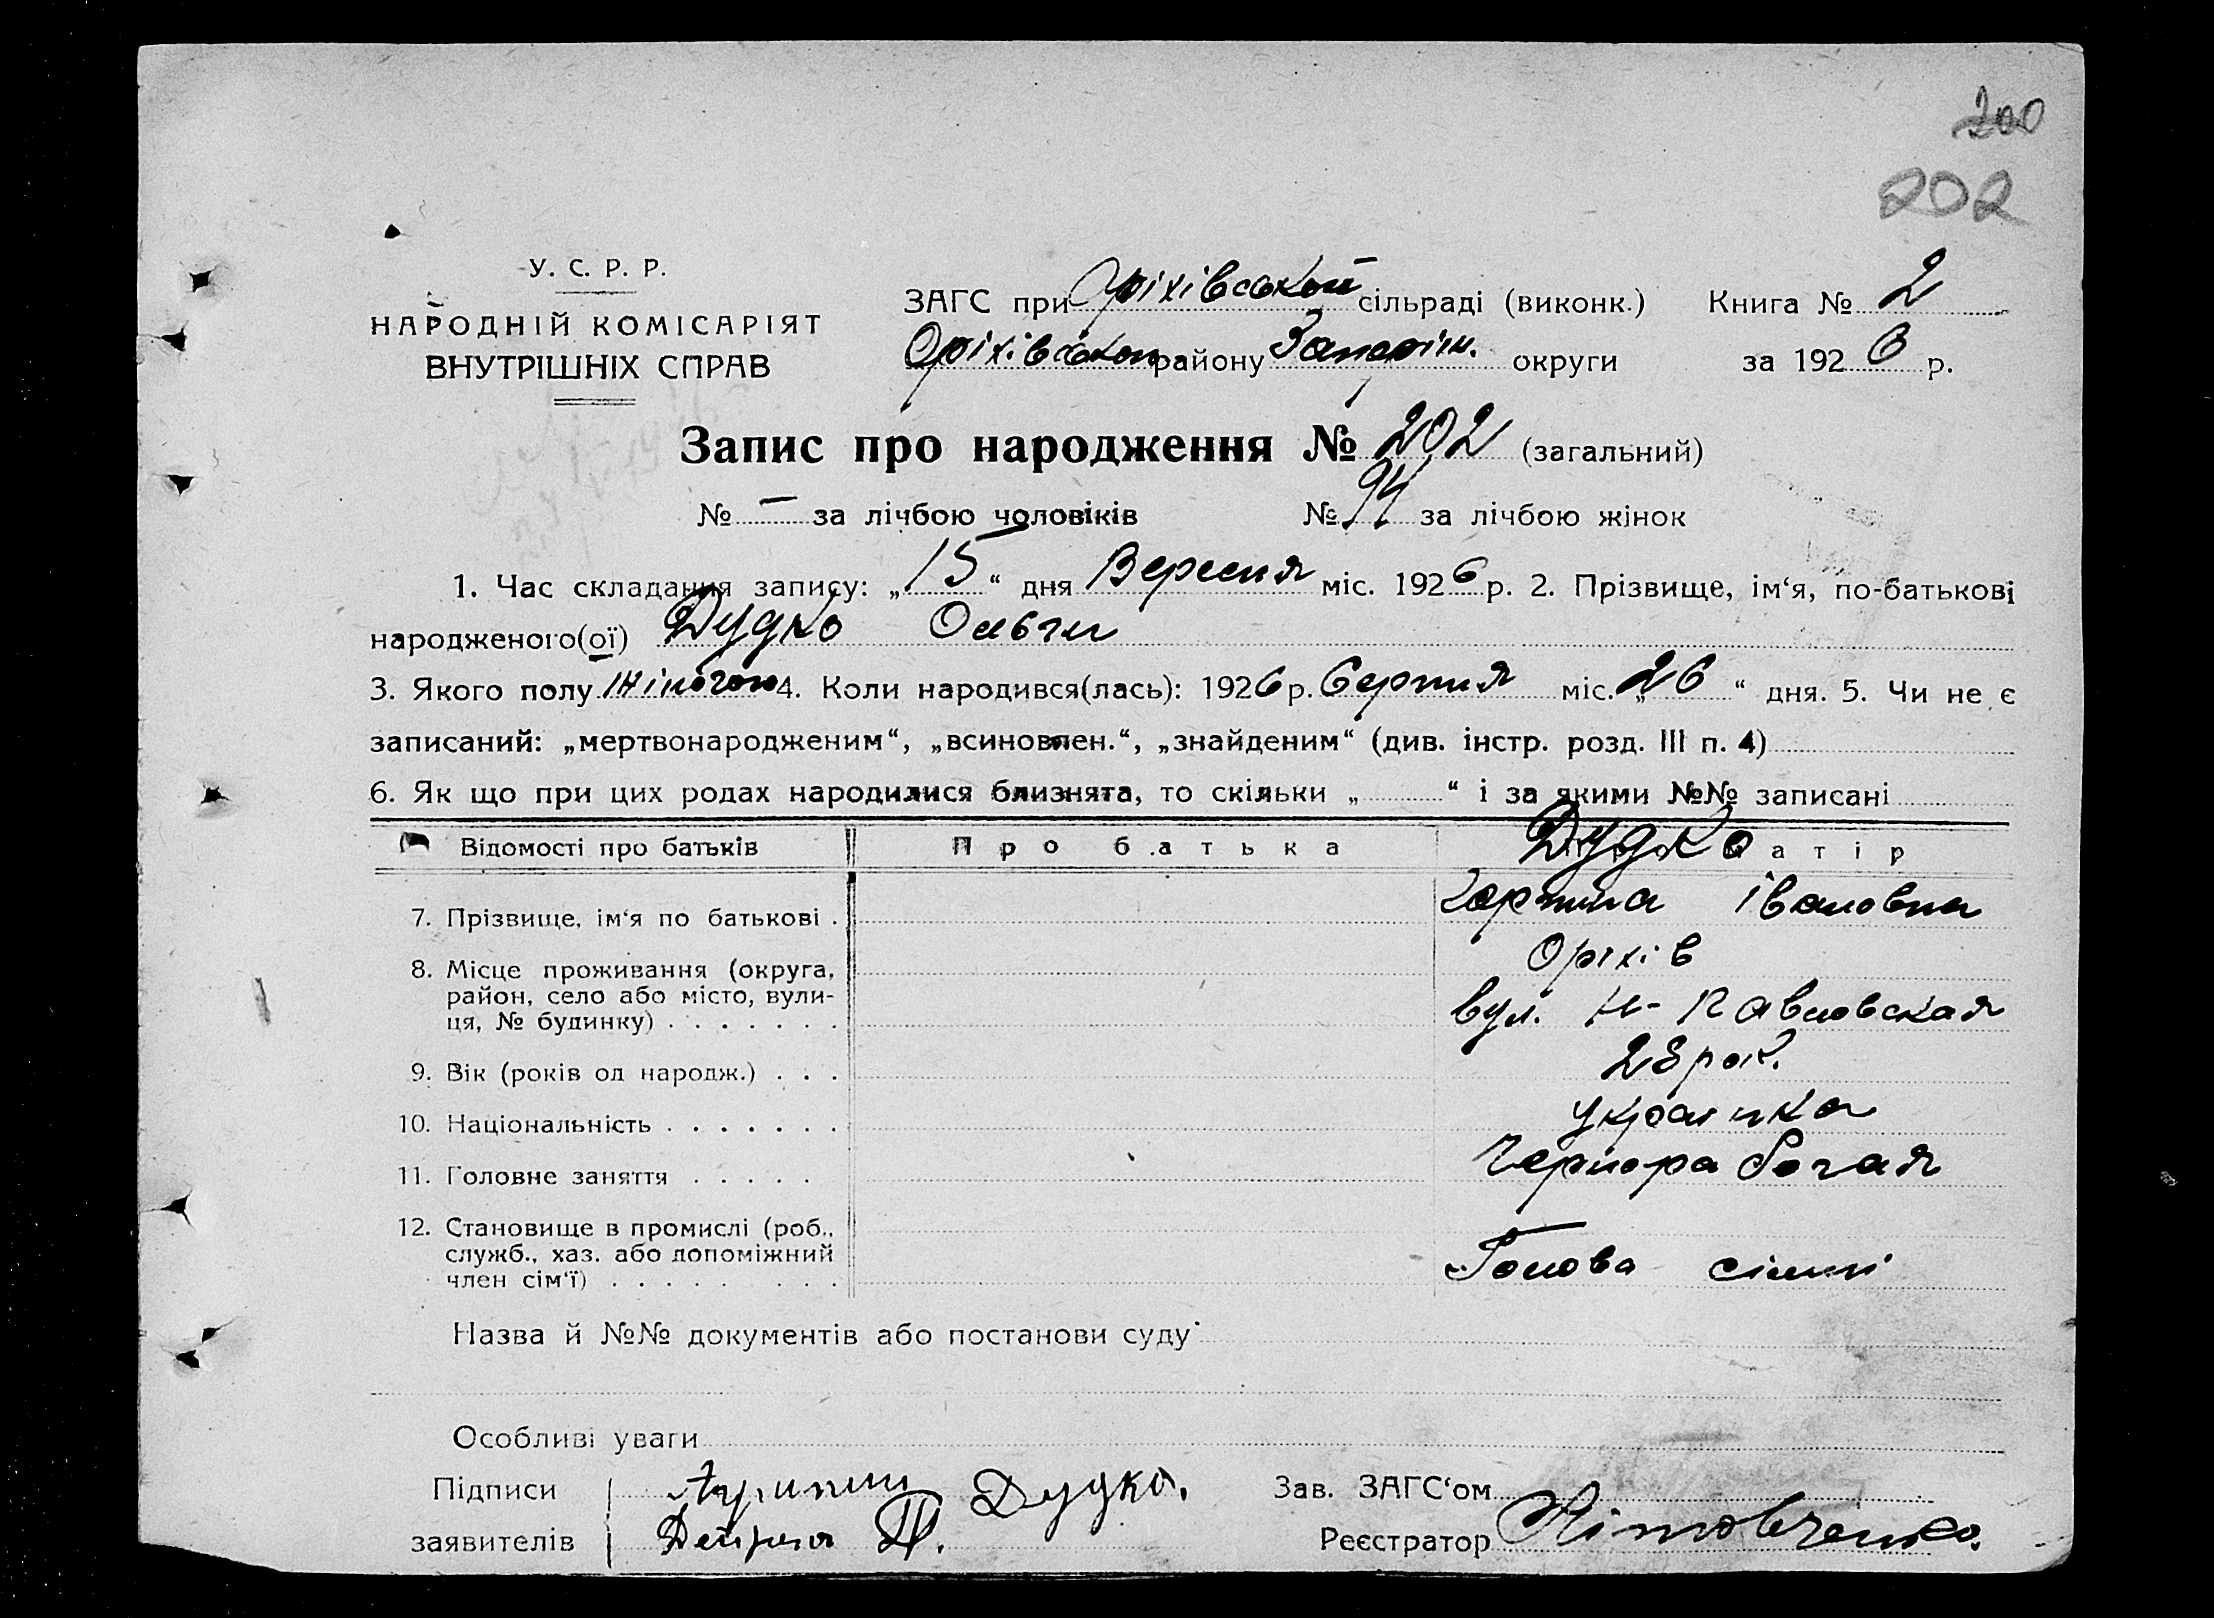 200
202
У. С. Р. Р.
НАРОДНІЙ КОМІСАРІЯТ
ВНУТРІШНІХ СПРАВ
ЗАГС при Оріхівськой сільраді (виконк.) Книга № 2
Оріхівськом району Запоріж. округи за 1926 р.
Запис про народження № 202 (загальний)
№ — за лічбою чоловіків № 94 за лічбою жінок
1. Час складання запису: „15“ дня Вересня міс. 1926 р. 2. Прізвище, ім‘я, по-батькові
народженого(ої) Дудко Ольги
3. Якого полу жіночого 4. Коли народився(лась): 1926 р. Серпня міс. „26“ дня. 5. Чи не є
записаний: „мертвонародженим“, „всиновлен.“, „знайденим“ (див. інстр. розд. III п. 4)
6. Як що при цих родах народилися близнята, то скільки „ “ і за якими №№ записані
Відомості про батьків Про батька матір
Дудко
7. Прізвище, ім‘я по батькові . Івановна
8. Місце проживання (округа, Оріхів
район, село або місто, вули-
ця, № будинку) . . . . . . . вул. Н-Павловская
9. Вік (років од народж.) . . . 28 рок.
10. Національність . . . . . . . українка
11. Головне заняття . . . . . Чернорабочая
12. Становище в промислі (роб.,
служб., хаз. або допоміжний
член сім‘ї) . . . . . . . . Голова сімьі
Назва й №№ документів або постанови суду
Особливі уваги
Підписи Дудко. Зав. ЗАГС‘ом
заявителів Реєстратор